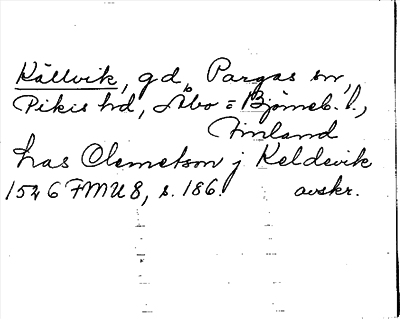 Källvik, gd, Pargas sn,
Pikis hd, Åbo = Björneb. l.,
Finland
Las Clemetson j Keldevik
1546 FMU 8, s. 186. avskr.